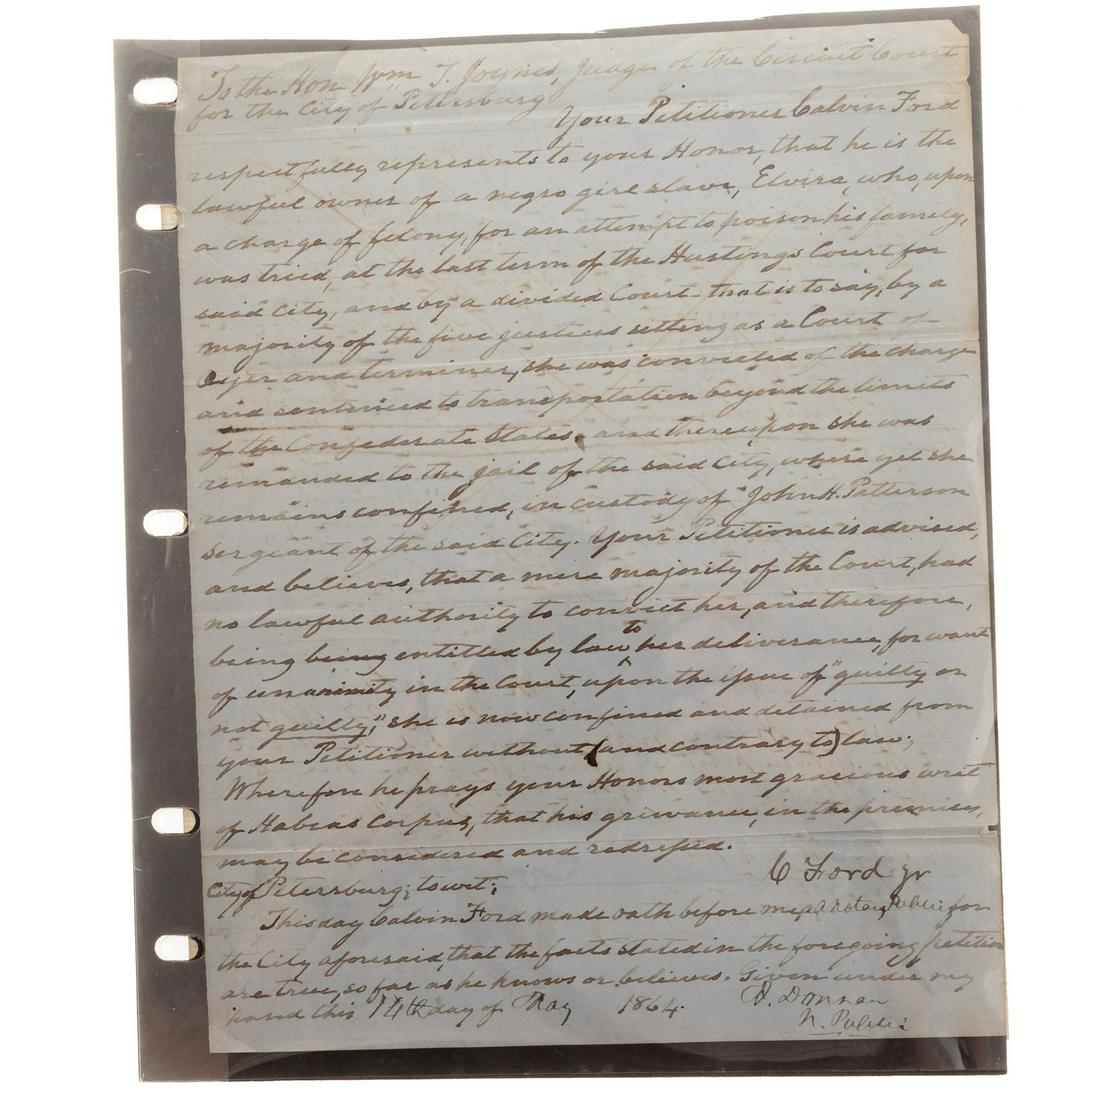 To the Hon Wm T. Joynes, Judge of the Circuit Court
for the City of Petersburg
Your Petitioner Calvin Ford
respectfully represents to your Honor, that he is the
lawful owner of a negro girl slave, Elvira, who, upon
a charge of felony, for an attempt to poison his family,
was tried, at the last term of the Hustings Court for
said City, and by a divided Court - that is to say, by a
majority of the five justices sitting as a Court of
Oyer and terminer, she was convicted of the charge
and sentenced to transportation beyond the limits
of the Confederate States, and thereupon she was
remanded to the jail of the said City, where yet she
remains confined, in custody of John H. Patterson
Sergeant of the said City. Your Petitioner is advised,
and believes, that a mere majority of the Court, had
no lawful authority to convict her, and therefore,
being being entitled by law to her deliverance, for want
of unanimity in the Court, upon the issue of "guilty or
not guilty," she is now confined and detained from
your Petitioner without (and contrary to) law;
Wherefore he prays your Honors most gracious writ
of Habeas Corpus, that his grievance, in the premises,
may be considered and redressed.
C Ford Jr
City of Petersburg; to wit;
This day Calvin Ford made oath before me, a Notary Public for
the City aforesaid, that the facts stated in the foregoing petition
are true, so far as he knows or believes. Given under my
hand this 14th day of May 1864.
A. Donnan
N. Public